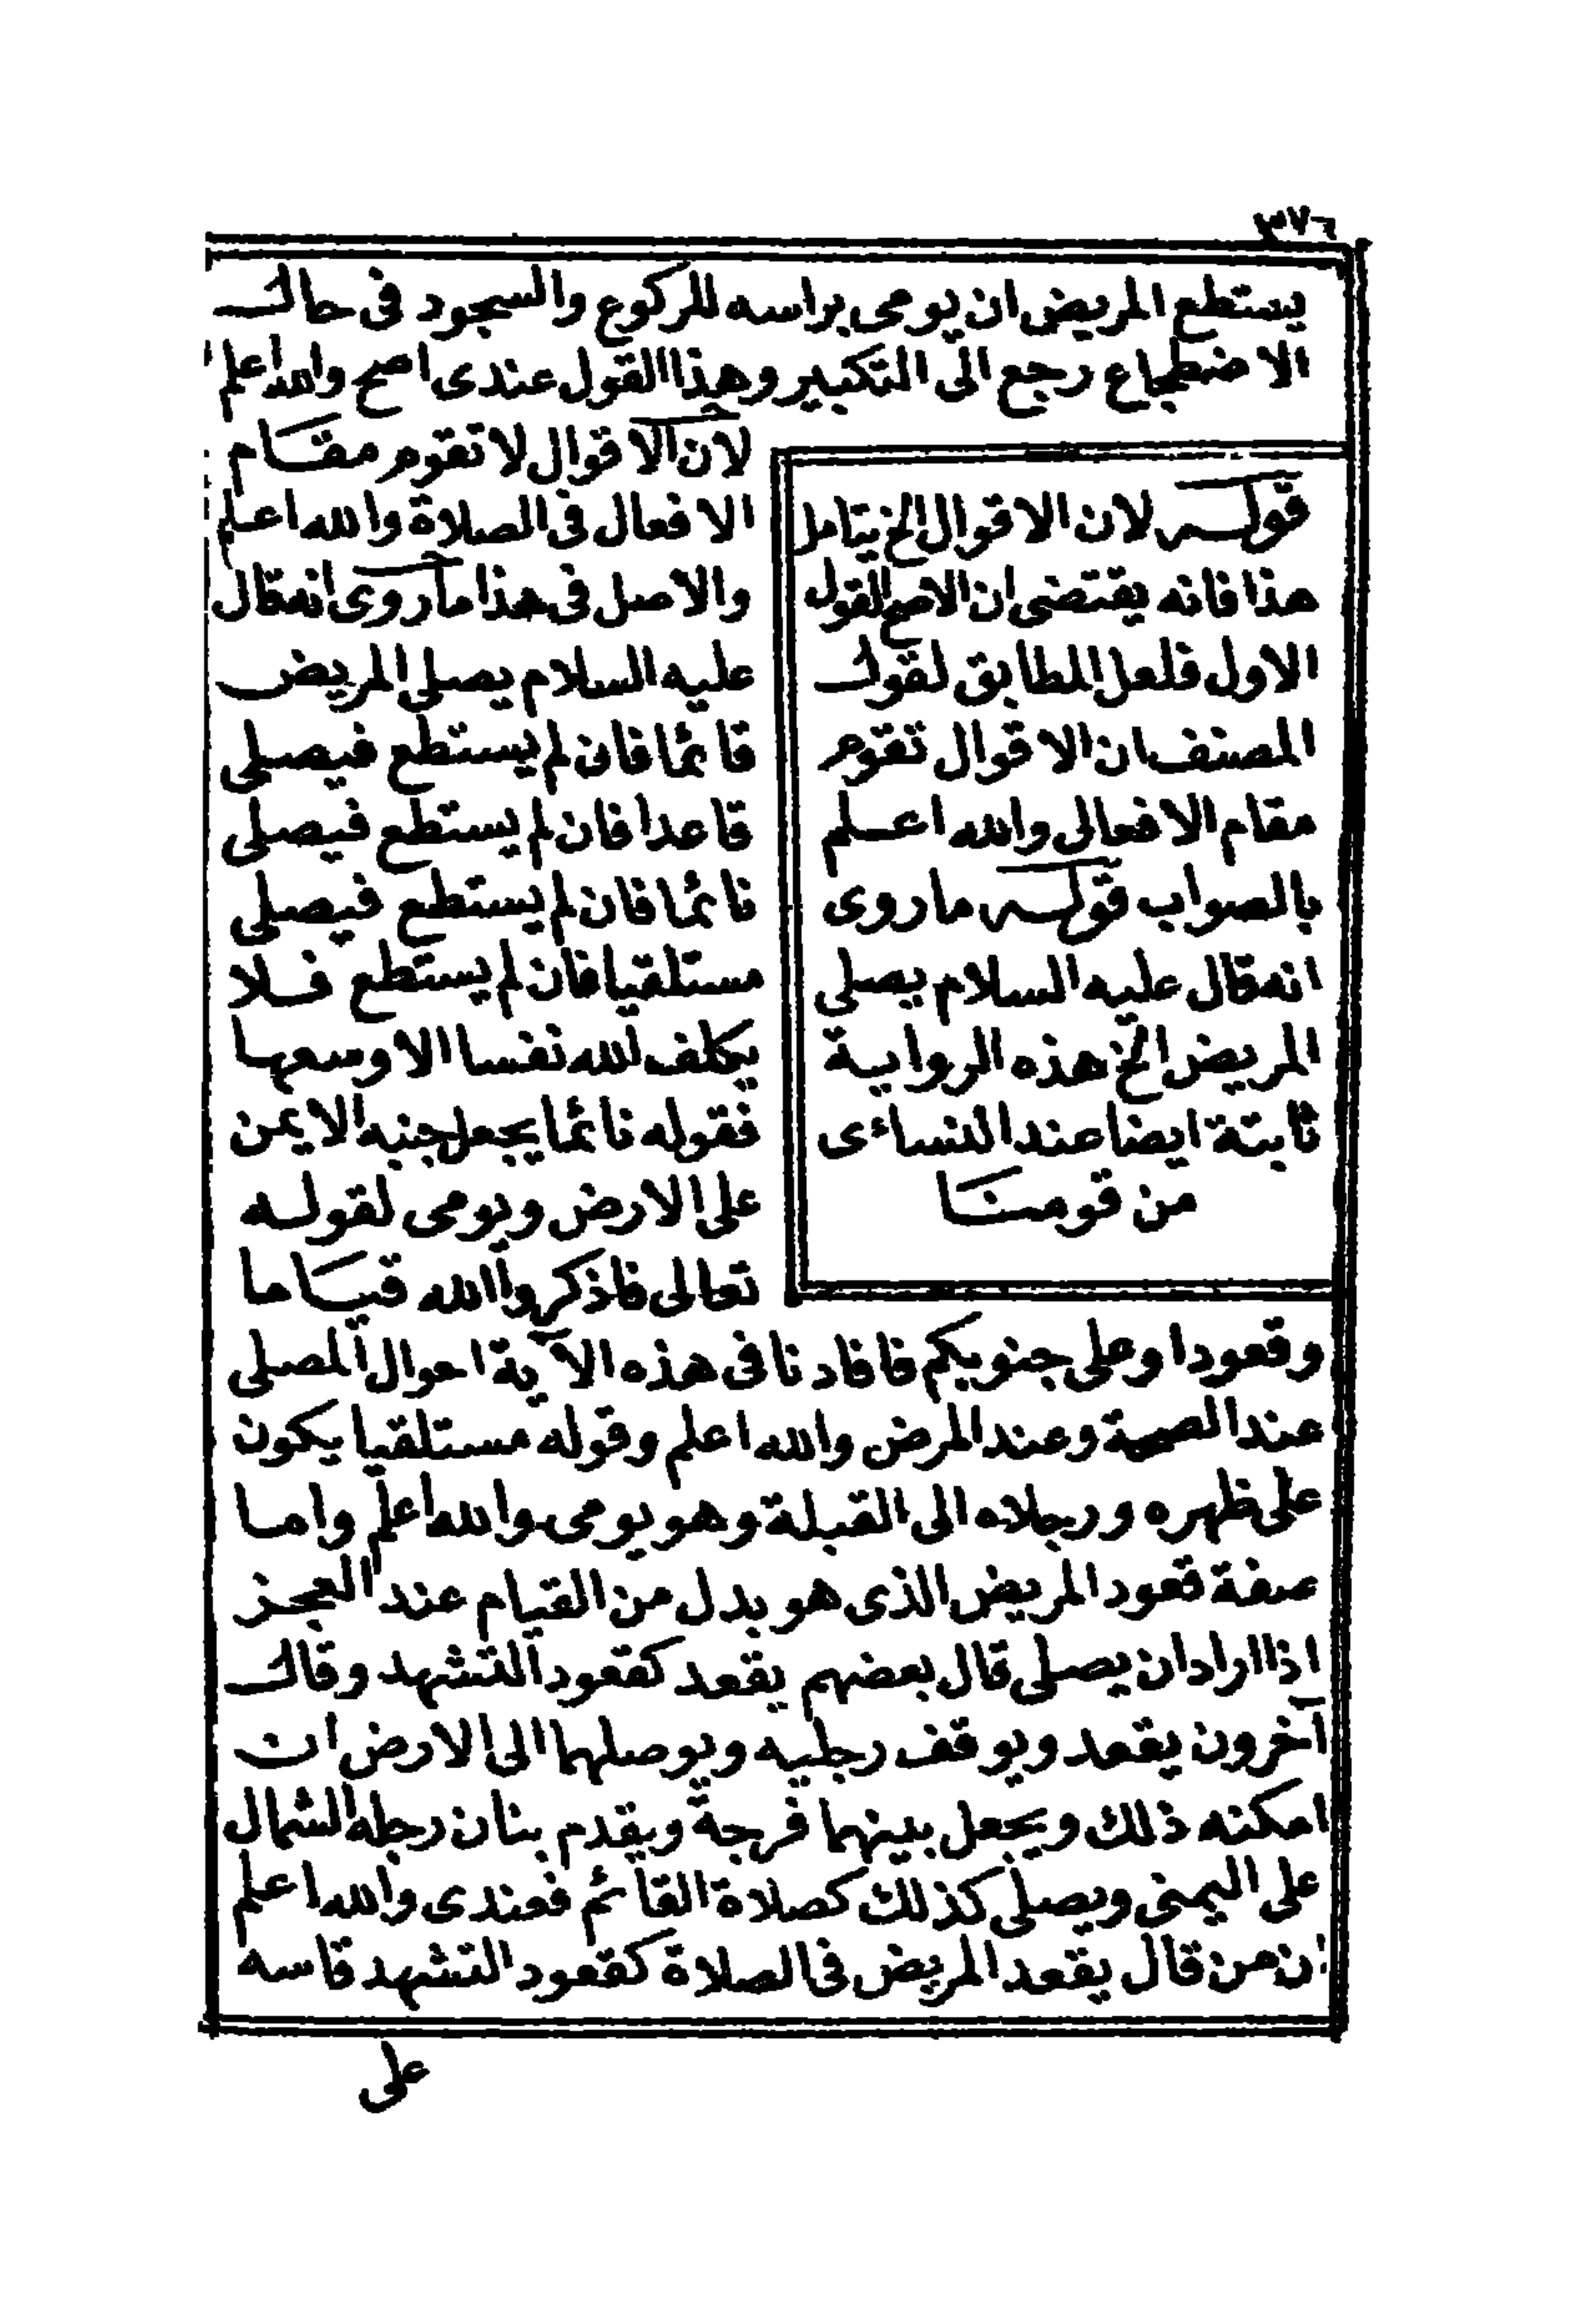 ٣٧٦
يستطع المريض ان يومى براسه للركوع والسجود فى حال
الاضطجاع رجع الى التكبير وهذا القول عندى اصح والله اعلم
لان الاقوال لا تقوم مقام
الافعال فى الصلاة والله اعلم
والاصل فى هذا ما روى انه قال
عليه السلام يصلى المريض
قائما فان لم يستطع فيصلى
قاعدا فان لم يستطع فيصلى
نائما فان لم يستطع فيصلى
مستلقيا فان لم يستطع فلا
يكلف لله نفسا الا وسعها
فقوله نائما يجعل جنبه الايمن
على الارض ويومى لقوله
تعالى فاذكروا الله قياما
قوله لان الاقوال الخ يتامل
هذا فانه يقتضى ان الاصح القول
الاول فلعل المطابق لقول
المصنف ان الاقوال تقوم
مقام الافعال والله اعلم
بالصواب قوله ما روى
انه قال عليه السلام يصلى
المريض الخ هذه الرواية
ثابتة ايضا عند النساءى
من قومنا
وقعودا وعلى جنوبكم فافادنا فى هذه الآية احوال المصلى
عند الصحة وعند المرض والله اعلم وقوله مستلقيا يكون
على ظهره ورجلاه الى القبلة وهو يومى والله اعلم واما
صفة قعود المريض الذى هو بدل من القيام عند العجز
اذا اراد ان يصلى قال بعضهم يقعد كقعود التشهد وقال
آخرون يقعد ويوقف رجليه ويوصلهما الى الارض ان
امكنه ذلك ويجعل بينهما فرجة ويقدم بنان رجله الشمال
على اليمنى ويصلى كذلك كصلاة القائم فعندى والله اعلم
ان من قال يقعد المريض فى الصلاة كقعود التشهد قاسه
على